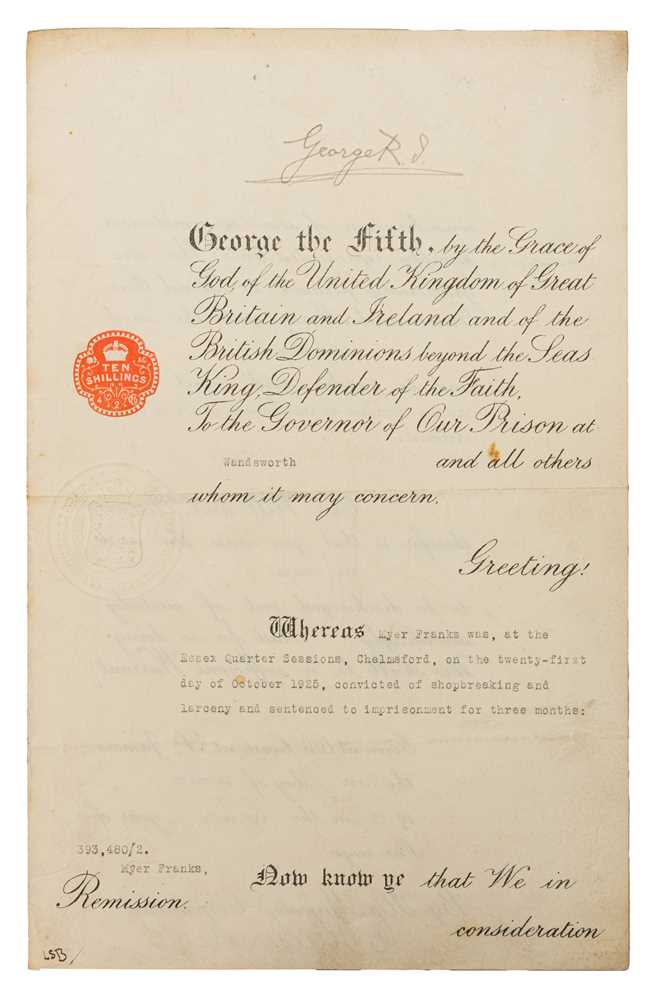 George R. I.
George the Fifth, by the Grace of
God, of the United Kingdom of Great
Britain and Ireland and of the
British Dominions beyond the Seas
King, Defender of the Faith,
To the Governor of Our Prison at
Wandsworth and all others
whom it may concern.
TEN
SHILLINGS
Greeting!
Whereas Myer Franks was, at the
Essex Quarter Sessions, Chelmsford, on the twenty-first
day of October 1925, convicted of shopbreaking and
larceny and sentenced to imprisonment for three months:
393,480/2.
Myer Franks,
Remission.
Now know ye that We in
consideration
LSB/